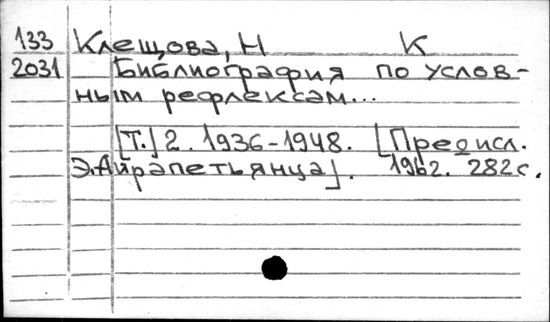 133 Клещова, Н К
2031 Библиография по услов-
ным рефлексам...
[Т.] 2. 1936-1948. [Предисл.
Э. Айрапетьянца]. 1962. 282с.